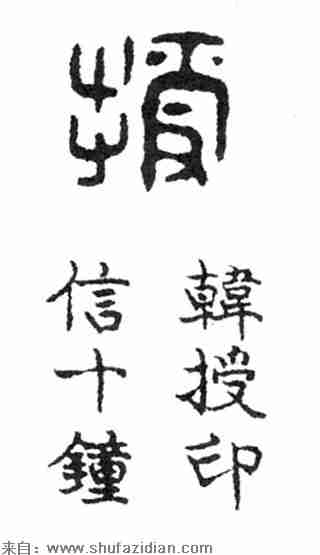 授
韓授印
信十鐘
来自：www.shufazidian.com